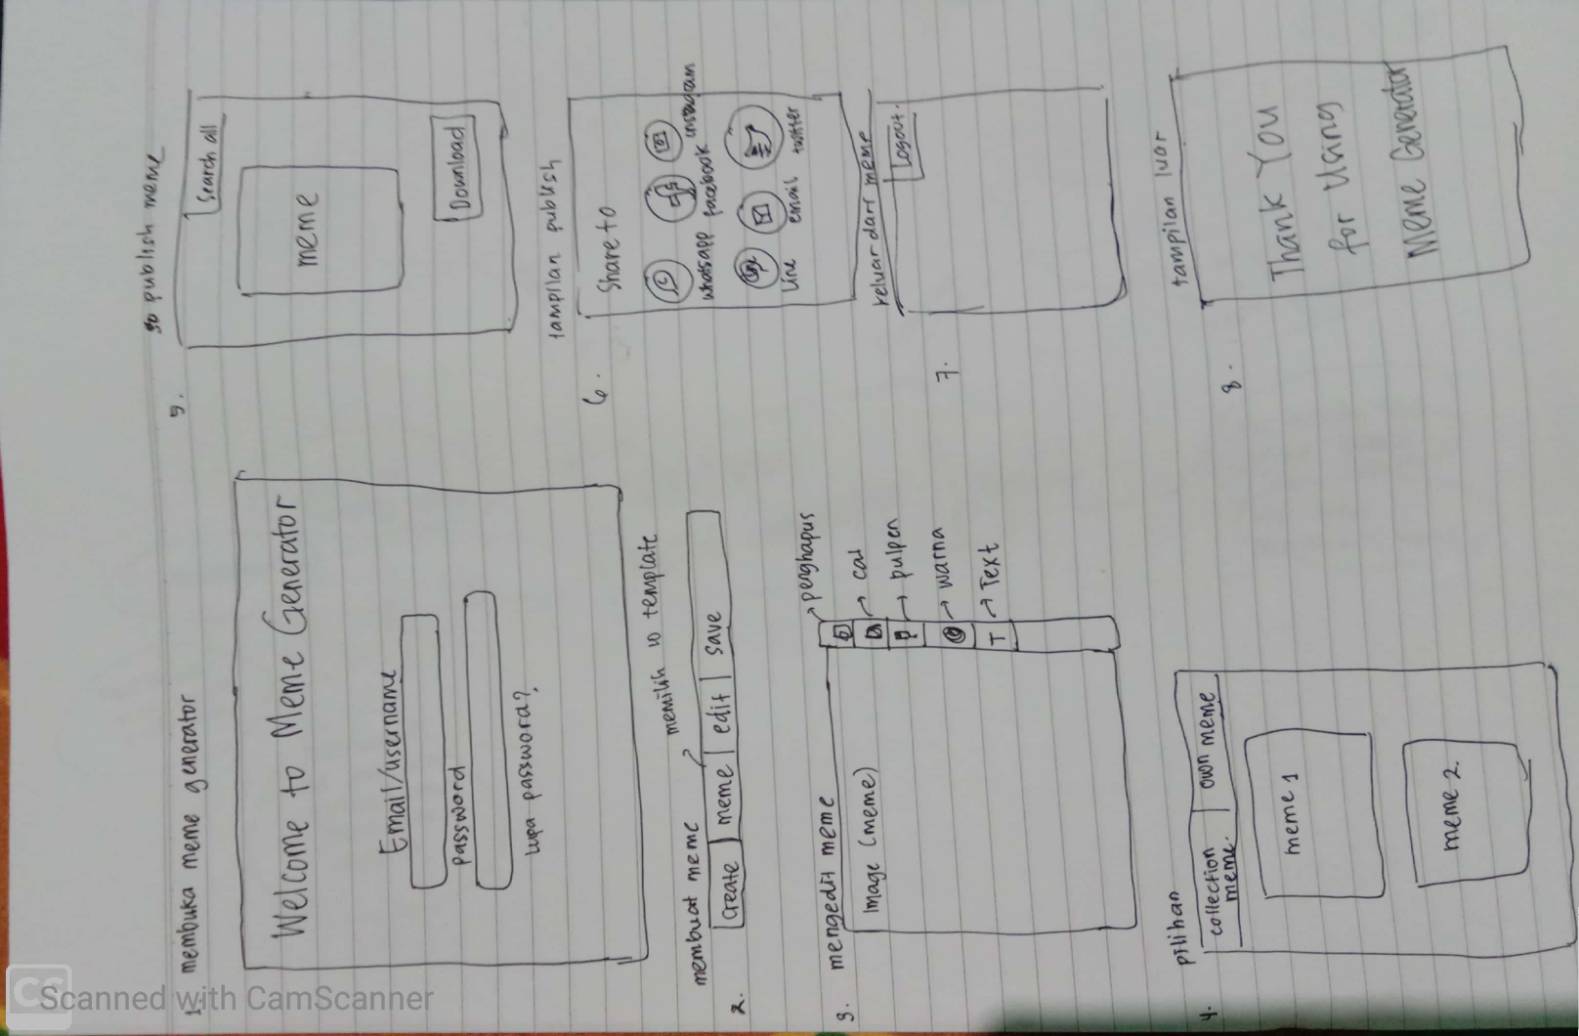 1. membuka meme generator
Welcome to Meme Generator
Email/username
password
lupa password?
2. membuat meme
memilih 10 template
Create meme edit save
3. mengedit meme
Image (meme)
penghapus
cat
pulpen
warna
T Text
4. pilihan
collection meme. own meme
meme 1
meme 2.
5. publish meme
Search all
meme
Download
6. tampilan publish
Share to
whatsapp facebook instagram
line email twitter
7. keluar dari meme
Logout.
8. tampilan luar
Thank You
for Using
Meme Generator
CS Scanned with CamScanner